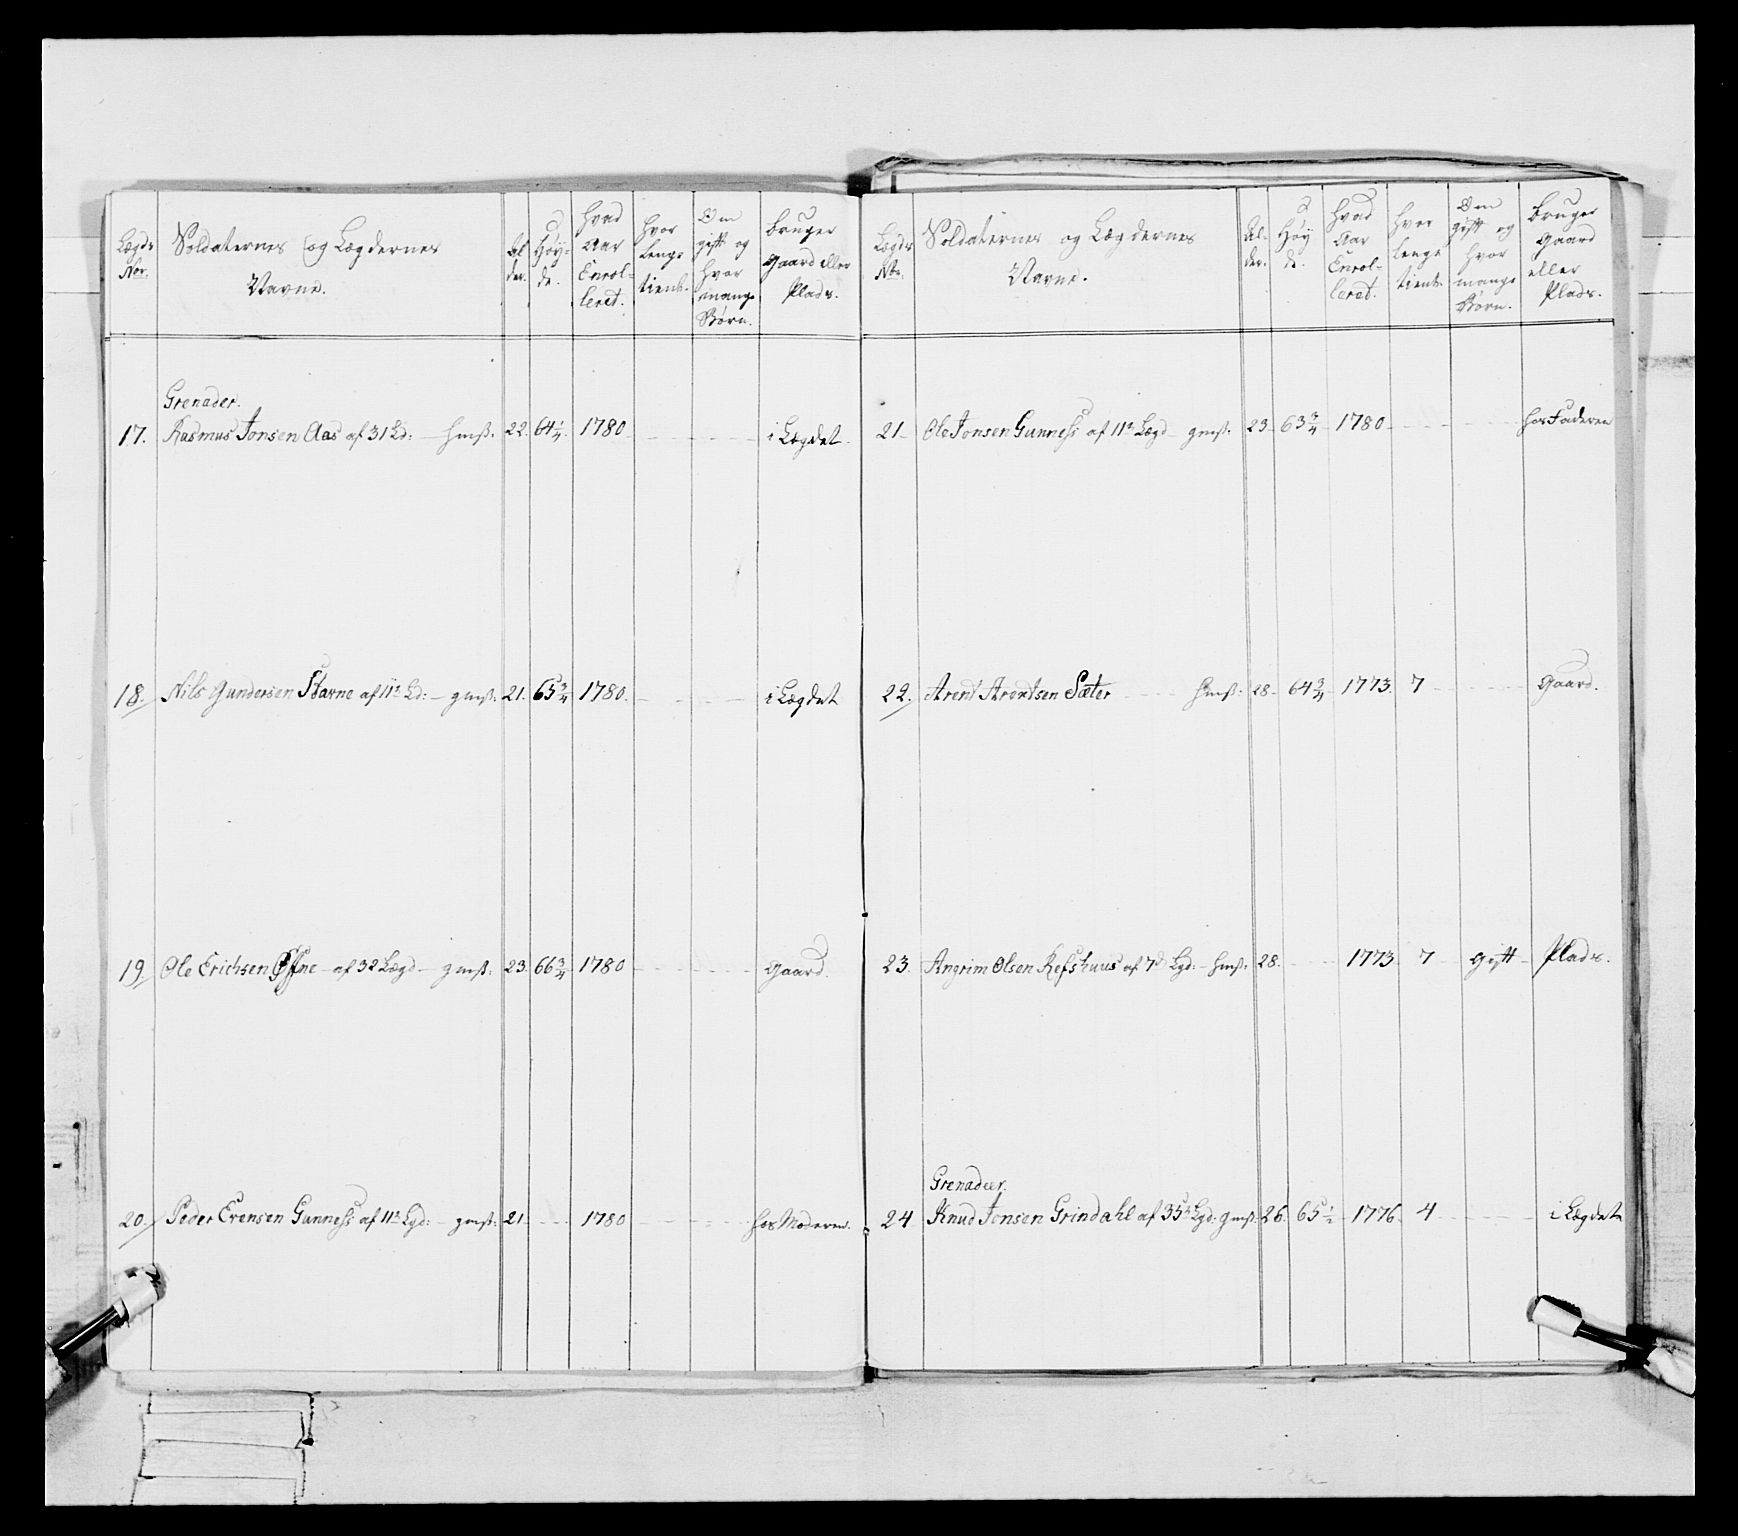 Lægds Nor.
Soldaternes og Lægdernes Navne.
Al der.
Høy- de.
Hvad Aar Enrol- leret.
Hvor Lenge tient.
Om gift og hvor mange Børn.
bruger Gaard eller Plads.
Grenader.
17. Rasmus Jonsen Aas af 31 Ld: - 22. 64 1/4. 1780 i Lægdet
18. Nils Gundersen Starne af 11te Ld: - 21. 65 3/4 1780. i Lægdet
19. Ole Erichsen - af 32 Lægd - 23. 66 3/4 1780 Gaard.
20. Peder Evensen Gunness af 11te Lgd: - 21. 1780 hos Moderen.
Lægds Nr.
Soldaternes og Lægdernes Navne.
Al- der.
Høy de.
Hvad Aar Enrol- leret.
hvor lenge tient.
Om gift og hvor mange Børn.
bruger Gaard eller Plads.
21. Ole Jonsen Gunness af 11te Lægd - 23. 63 3/4 1780 hos Faderen
22. Arent Arentsen Sæter 28. 64 3/4 1773. 7 Gaard.
23. Angrim Olsen Refshuus af 7de Lgd: - 28. 1773 7 gift Plads.
Grenadeer.
24. Knud Jonsen Grindahl af 35te Lgd: 26. 65 1/2 1776 4 i Lægdet